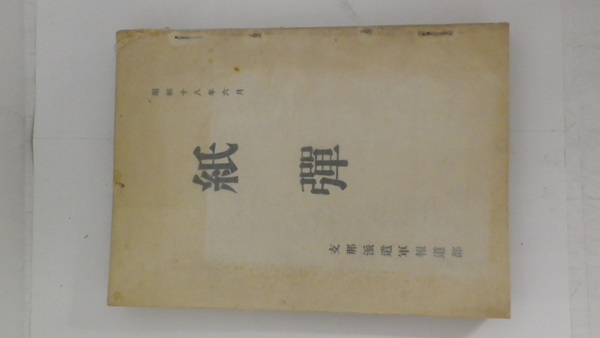 昭和十八年六月
紙彈
支那派遣軍報道部